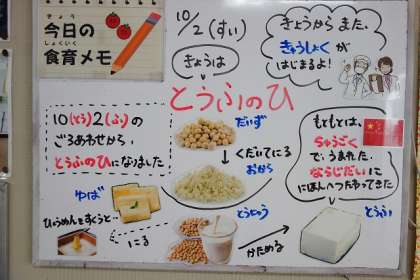 きょう
今日の
しょくいく
食育メモ
10/2(すい)
きょうは
きょうからまた、
きゅうしょくが
はじまるよ!
とうふのひ
10(とう)2(ふ)の
ごろあわせから、
とうふのひになりました
だいず
くだいてにる
おから
とうにゅう
かためる
とうふ
ゆば
ひょうめんをすくうと…
にる
もともとは、
ちゅうごく
で、うまれた。
ならじだいに
にほんへつたわってきた